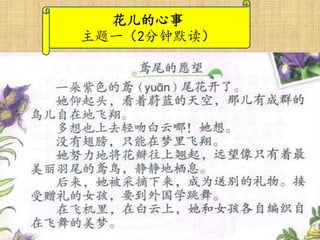 花儿的心事
主题一（2分钟默读）
鸢尾的愿望
一朵紫色的鸢（yuān）尾花开了。
她仰起头，看着蔚蓝的天空，那儿有成群的
鸟儿自在地飞翔。
多想也上去轻吻白云哪！她想。
没有翅膀，只能在梦里飞翔。
她努力地将花瓣往上翘起，远望像只有着最
美丽羽尾的鸢鸟，静静地栖息。
后来，她被采摘下来，成为送别的礼物。接
受赠礼的女孩，要到外国学跳舞。
在飞机里，在白云上，她和女孩各自编织自
在飞舞的美梦。